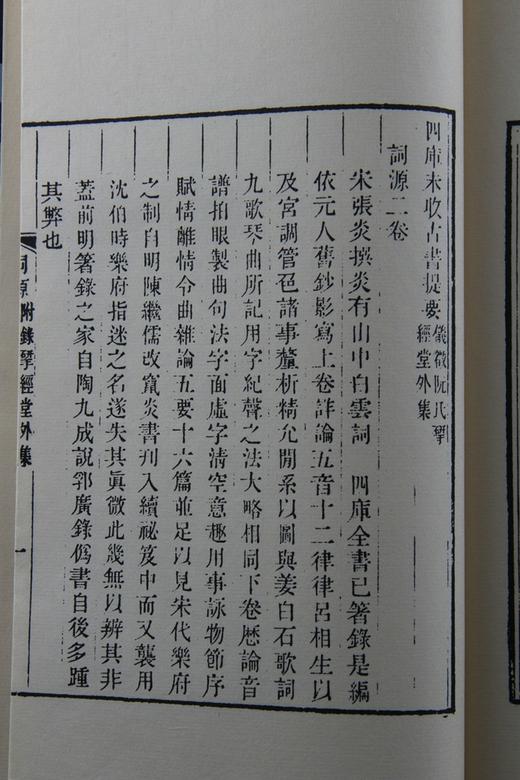 四庫未收古書提要儀徵阮氏揅經堂外集
詞源二卷
宋張炎撰炎有山中白雲詞 四庫全書已箸錄是編
依元人舊鈔影寫上卷詳論五音十二律律呂相生以
及宮調管色諸事釐析精允閒系以圖與姜白石歌詞
九歌琴曲所記用字紀聲之法大略相同下卷歷論音
譜拍眼製曲句法字面虛字清空意趣用事詠物節序
賦情離情令曲雜論五要十六篇並足以見宋代樂府
之制自明陳繼儒改竄炎書刊入續祕笈中而又襲用
沈伯時樂府指迷之名遂失其眞微此幾無以辨其非
蓋前明箸錄之家自陶九成說郛廣錄僞書自後多踵
其弊也
詞源附錄揅經堂外集 一